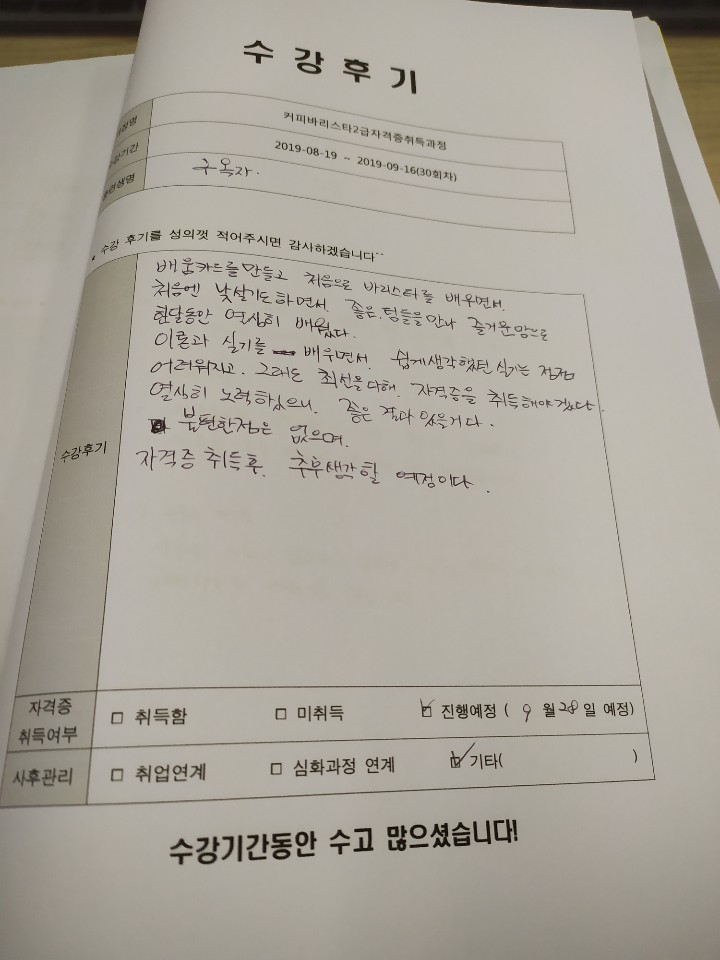 수강후기
과정명 커피바리스타2급자격증취득과정
수강기간 2019-08-19 ~ 2019-09-16(30회차)
훈련생명 구옥자.
수강 후기를 성의껏 적어주시면 감사하겠습니다^^
배움카드를 만들고 처음으로 바리스타를 배우면서.
처음엔 낯설기도하면서. 좋은.팀들을 만나 즐거운 맘으로
한달동안 열심히 배웠다.
이론과 실기를 배우면서. 쉽게 생각했던 실기는 점점
어려워지고. 그래도 최선을 다해. 자격증을 취득해야겠다.
열심히 노력하였으니. 좋은 결과 있을거다.
불편한점은 없으며.
수강후기
자격증 취득후. 추후생각할 예정이다.
자격증 취득여부 □ 취득함 □ 미취득 ☑ 진행예정 ( 9 월 28 일 예정)
사후관리 □ 취업연계 □ 심화과정 연계 ☑ 기타( )
수강기간동안 수고 많으셨습니다!